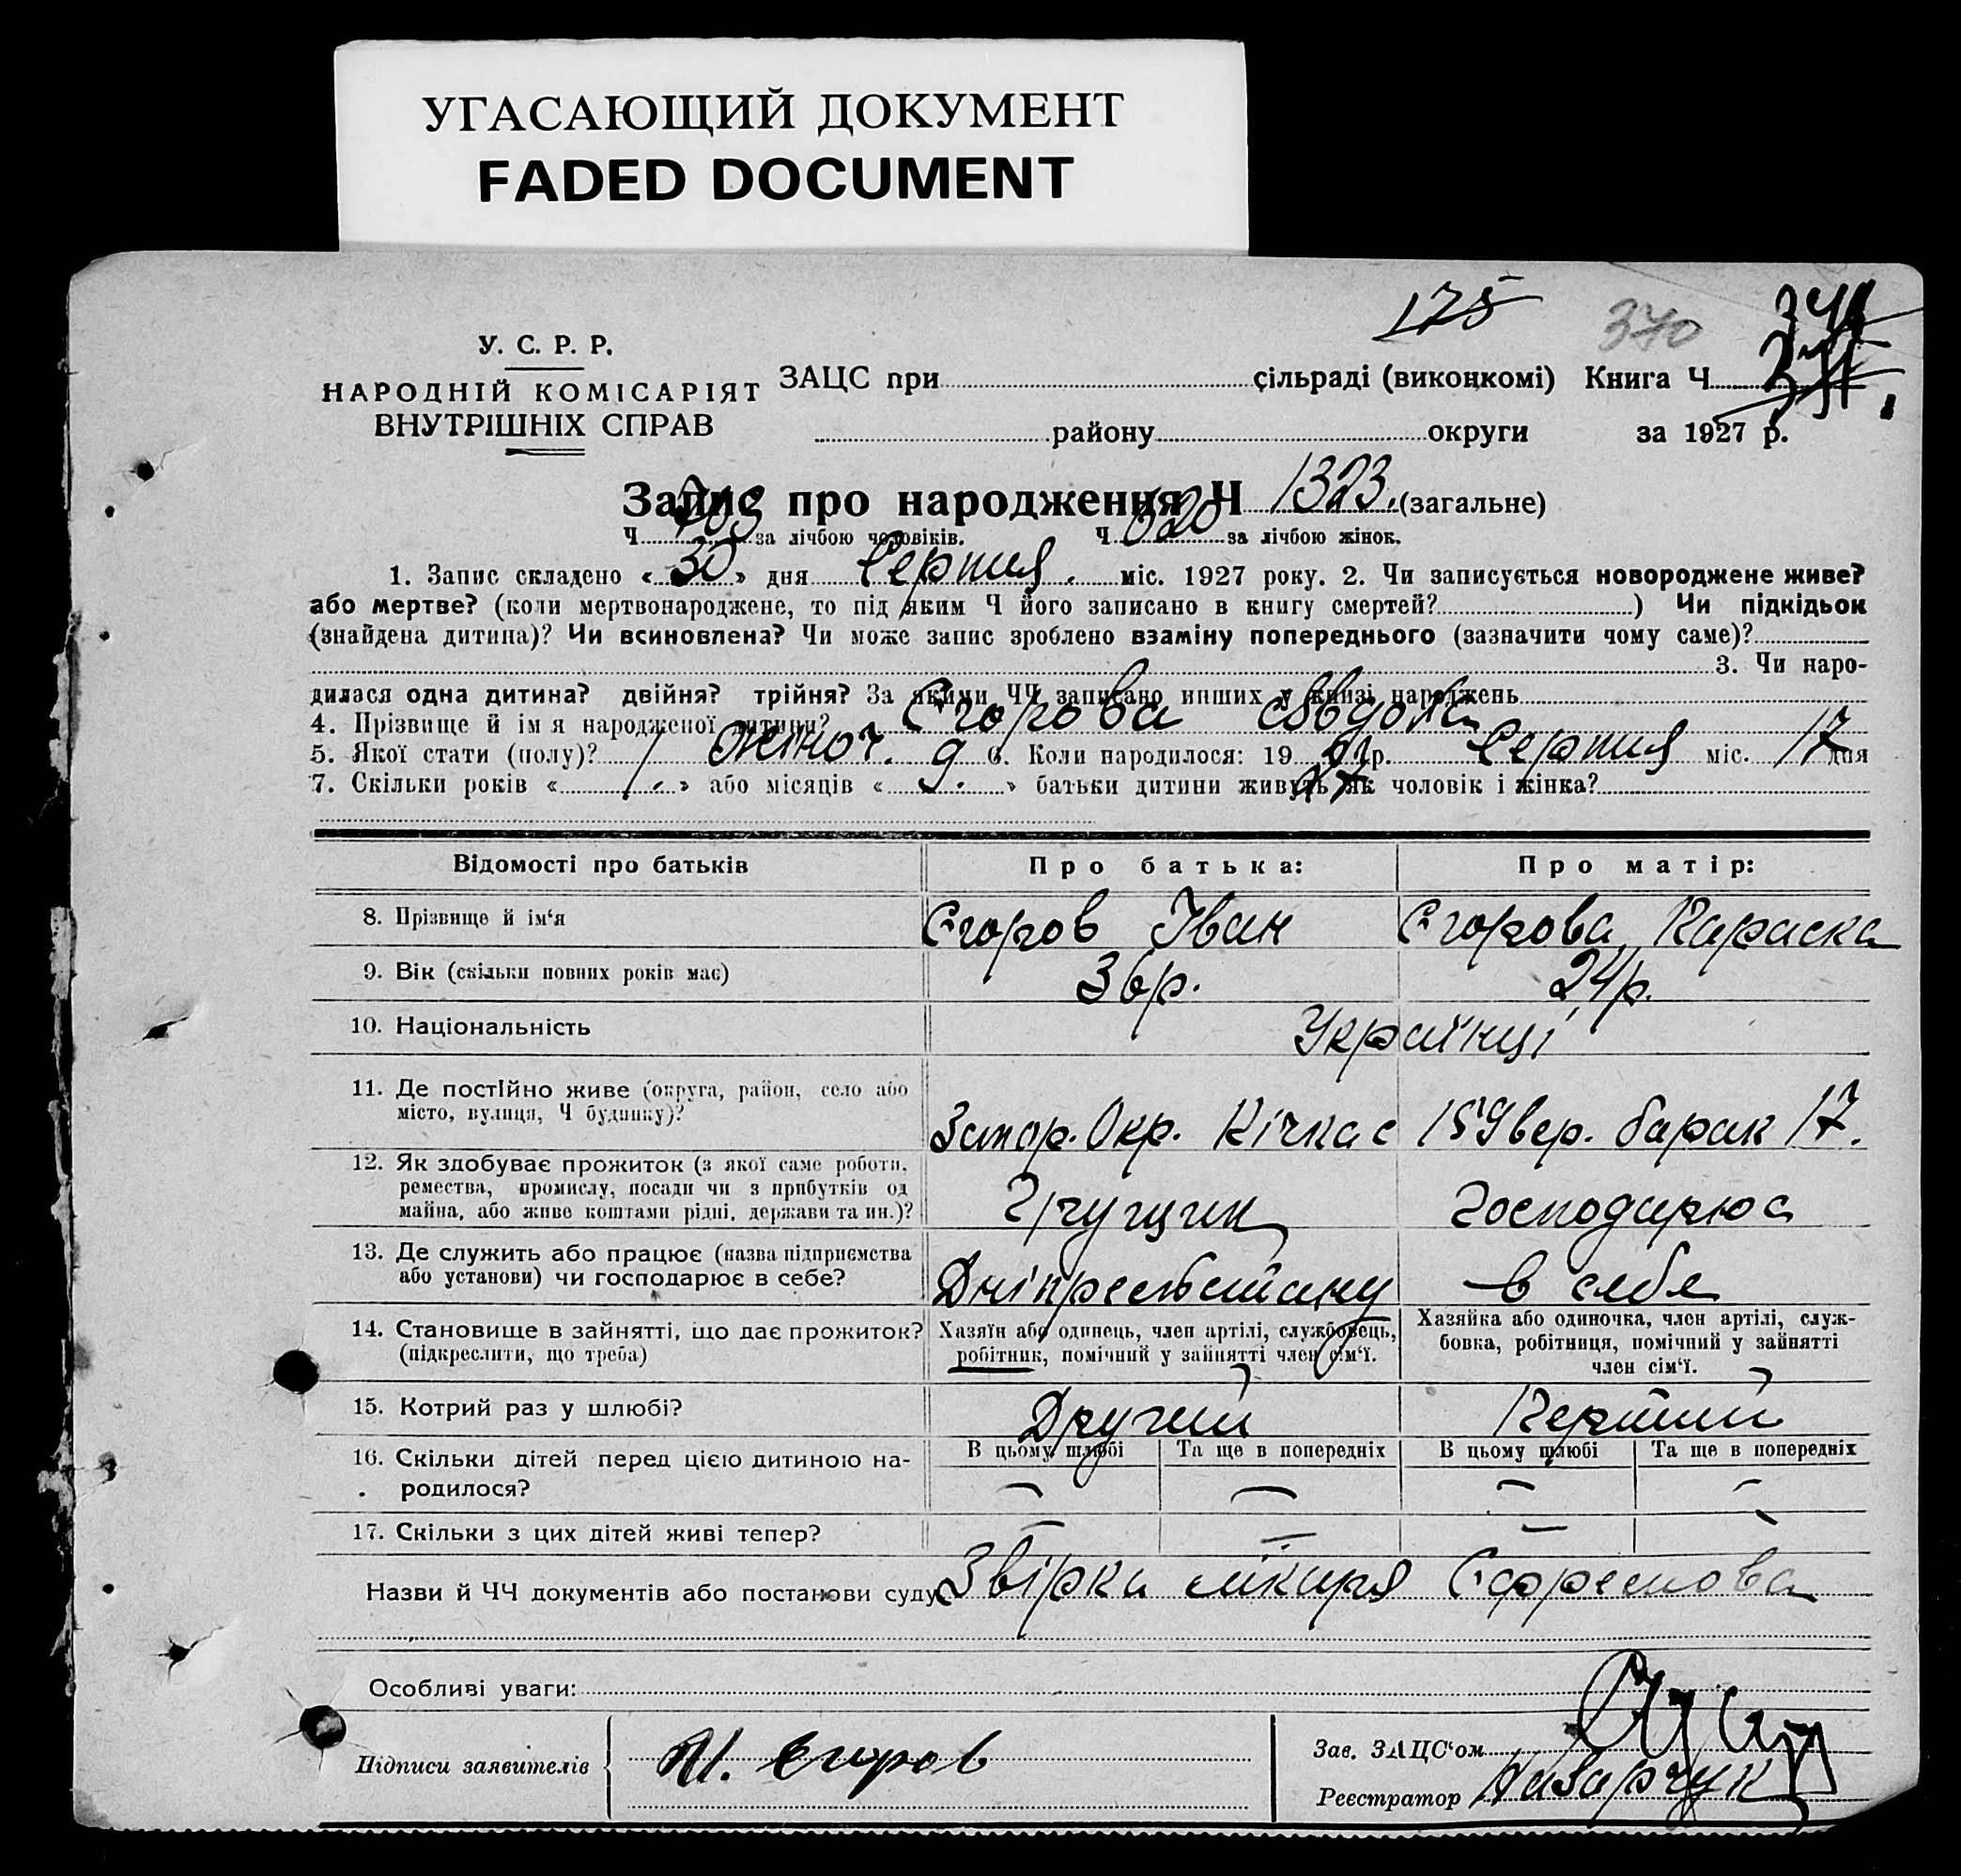 УГАСАЮЩИЙ ДОКУМЕНТ
FADED DOCUMENT
175 370
У. С. Р. Р.
НАРОДНІЙ КОМІСАРІЯТ
ВНУТРІШНІХ СПРАВ
ЗАЦС при сільраді (виконкомі) Книга Ч.
району округи за 1927 р.
Запис про народження Ч 1323. (загальне)
Ч 703 за лічбою чоловіків. Ч. 620 за лічбою жінок.
1. Запис складено « 30 » дня Серпня. міс. 1927 року. 2. Чи записується новороджене живе?
або мертве? (коли мертвонароджене, то під яким Ч його записано в книгу смертей? ) Чи підкідьок
(знайдена дитина)? Чи всиновлена? Чи може запис зроблено взаміну попереднього (зазначити чому саме)?
3. Чи наро-
дилася одна дитина? двійня? трійня? За якими ЧЧ записано инших у книзі народжень
4. Прізвище й ім я народженої дитини? Єгорова Явдоха
5. Якої стати (полу)? жіноч. 6. Коли народилося: 19 27 р. Серпня міс. 17 дня
7. Скільки років « » або місяців « 9. » батьки дитини живуть як чоловік і жінка?
Відомості про батьків Про батька: Про матір:
8. Прізвище й ім‘я Єгоров Іван Єгорова Параска
9. Вік (скільки повних років має) 36р. 24р.
10. Національність Українці
11. Де постійно живе (округа, район, село або
місто, вулиця, Ч будинку)? Запор. Окр. Кічкас 159 вер. барак 17.
12. Як здобуває прожиток (з якої саме роботи,
ремества, промислу, посади чи з прибутків од
майна, або живе коштами рідні, держави та ин.)? Грущик Господарює
13. Де служить або працює (назва підприємства
або установи) чи господарює в себе? в себе
14. Становище в зайнятті, що дає прожиток?
(підкреслити, що треба)
Хазяїн або одинець, член артілі, службовець,
робітник, помічний у зайнятті член сім‘ї.
Хазяйка або одиночка, член артілі, служ-
бовка, робітниця, помічний у зайнятті
член сім‘ї.
15. Котрий раз у шлюбі? Другий Перший
16. Скільки дітей перед цією дитиною на-
родилося?
В цьому шлюбі Та ще в попередніх В цьому шлюбі Та ще в попередніх
17. Скільки з цих дітей живі тепер?
Назви й ЧЧ документів або постанови суду Звірка лікаря Єфремова
Особливі уваги:
Підписи заявителів И. Егоров
Зав. ЗАЦС‘ом
Реєстратор Назарчук